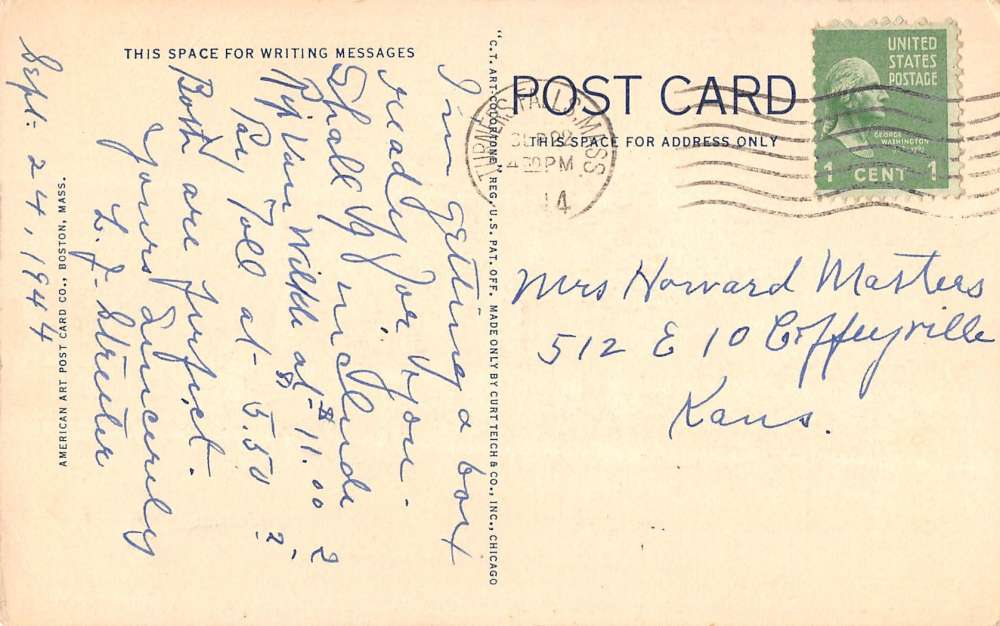 THIS SPACE FOR WRITING MESSAGES
Sept. 24, 1944
I'm getting a box
ready for you.
Shall I include
at $11.00 ?
Toll at $5.50 ?
Both are perfect.
Yours Sincerely
L. J. Streeter
AMERICAN ART POST CARD CO., BOSTON, MASS.
"C.T. ART-COLORTONE" REG. U.S. PAT. OFF. MADE ONLY BY CURT TEICH & CO., INC., CHICAGO
POST CARD
THIS SPACE FOR ADDRESS ONLY
TURNERS FALLS, MASS
PM
UNITED
STATES
POSTAGE
GEORGE
WASHINGTON
1 CENT 1
Mrs Howard Masters
512 E 10 Coffeyville
Kans.